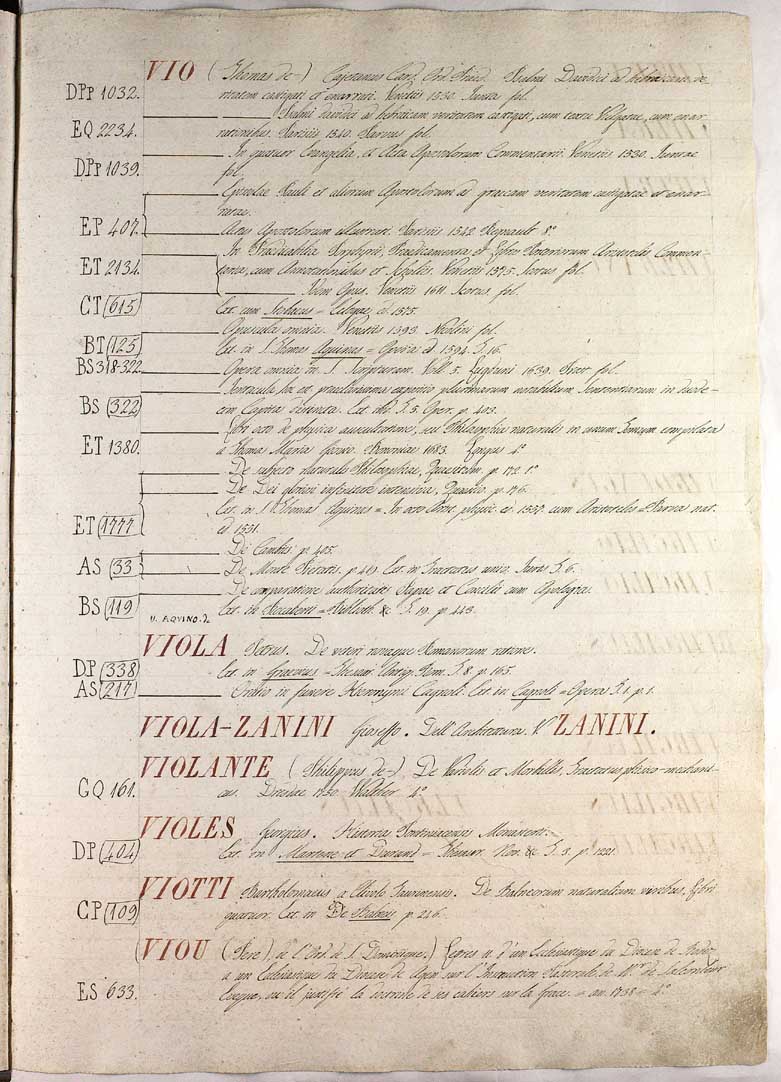 VIO (Thomas de-) Cajetanus Card. Ord. Praed. Psalmi Davidici ad hebraicam ve-
DPp 1032. ritatem castigati et enarrati. Venetiis 1530. Juntae fol.
Psalmi davidici ad hebraicam veritatem castigati, cum textu Vulgatae, cum enar-
EQ 2234. rationibus. Parisiis 1540. Parvus fol.
In quatuor Evangelia, et Acta Apostolorum Commentarii. Venetiis 1530. Juntae
DPp 1039. fol.
Epistolae Pauli et aliorum Apostolorum ad graecam veritatem castigatae et enar-
ratae.
EP 407. Actus Apostolorum illustrati. Parisiis 1542 Regnault 8°
In Praedicabilia Porphyrii, Praedicamenta et Libros Posteriorum Aristotelis Commen-
ET 2134. taria, cum Annotationibus et Scholiis. Venetiis 1575. Scotus fol.
Idem Opus. Venetiis 1611. Scotus fol.
CT (615) Ext. cum ed. 1575.
Opuscula omnia. Venetiis 1593. Nicolini fol.
BT (125) Ext. in S. Thomas Aquinas = Opera ed. 1594. T. 16.
BS 318-322 Opera omnia in S. Scripturam. Voll. 5. Lugduni 1639. fol.
Jentacula hoc est praeclarissima expositio plurimarum notabilium Sententiarum in duode-
BS (322) cim Capita distincta. Ext. ibi T. 5. Oper. p. 403.
Libri octo de physica auscultatione, seu Philosophia naturalis in unum compilata
ET 1380. a Thoma Maria Bononiae 1683. Longus 4°
De subjecto naturalis Philosophiae, Quaestium. p. 172 1°
De Dei gloriosi infinitate intensiva, Quaestio. p. 176.
Ext. in S. Thomas Aquinas = In octo libros physic. ed. 1537. cum Aristotelis = Parva nat.
ET (1777) ed 1531.
De Cambiis. p. 405.
AS (33) De Monte Pietatis. p. 419 Ext. in Tractatus univ. Juris T. 6.
De comparatione authoritatis Papae et Concilii cum Apologia.
BS (119) Ext. in Rocaberti = Biblioth. &c T. 19. p. 443.
V. AQVINO. 2
VIOLA Petrus. De veteri novaque Romanorum ratione.
DP (338) Ext. in Graevius = Thesaur. Antiq. Rom. T. 8. p. 165.
AS (217) Oratio in funere Hieronymi Cagnoli. Ext. in Cagnoli = Opera T. 1. p. 1.
VIOLA-ZANINI Gioseffo. Dell' Architettura. V. ZANINI.
VIOLANTE (Philippus de-) De Variolis et Morbillis, Tractatus physico-mechani-
GQ 161. cus. Dresdae 1750. Walther 4°
VIOLES Georgius. Historia Monasterii.
DP (404) Ext. in Martene et Durand = Thesaur. Nov. &c T. 3. p. 1221.
VIOTTI Bartholomaeus a Clivolo Taurinensis. De Balneorum naturalium viribus, Libri
CP (109) quatuor. Ext. in De Balneis p. 246.
VIOU (Pere), de l'Ord. de S. Dominique.) Lettres II d'un Ecclesiastique du Diocese de Rodez
a un Ecclesiastique du Diocese de Agen sur l'Instruction Pastorale de Mr. de Saleon leur
ES 633. Eveque, ou il justifie la doctrine de ses cahiers sur la Grace. = an. 1738 = 4°